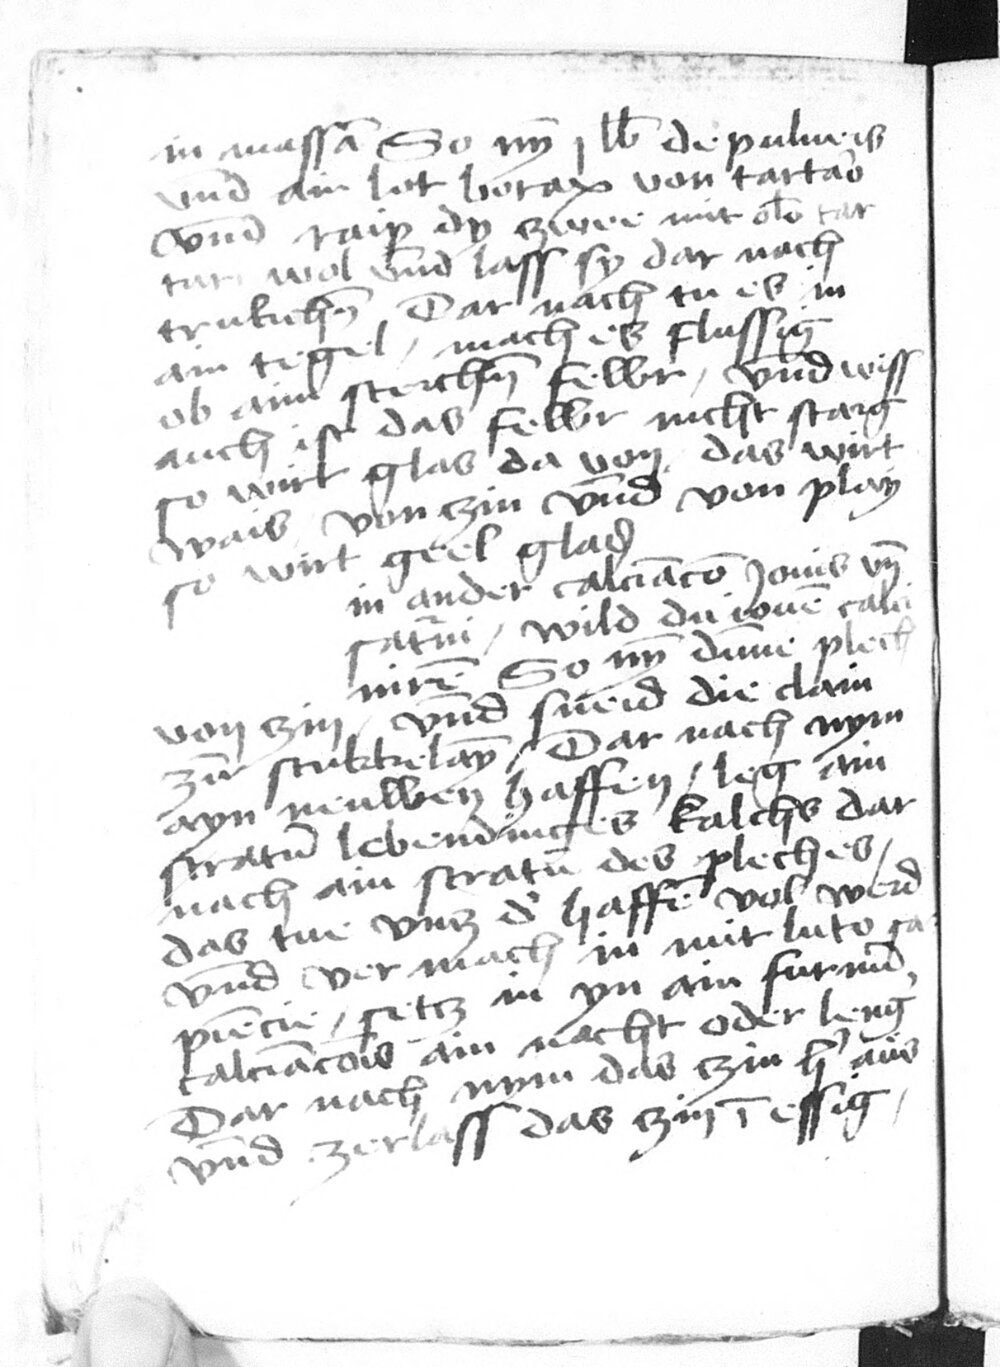 in massā So nȳ j lb de pulueis
vnd ain lot borax von tartaō
vnd raip dy zwee mit olō tar
tari wol vnd lass sy dar nach
trukich̄n Dar nach tu es in
ain tegel / mach es flussig
ob aim sterchn̄ fewr / vnd wiss
auch ist das fewr nicht starg
so wirt glas da von das wirt
wais / von zin vnd von play
so wirt geel glas
in ander calciacō Jouis vn̄
saturni / wild du iouē calci
nirē So nȳ dunne plech
von zin / vnd sneid die clain
zur stukkelay / Dar nach nym
ayn neuwen haffen / leg ain
stratū lebendinges kalchs dar
nach ain stratū des pleches /
das tue vntz d' haffē vol werd
vnd vermach in mit luto sa
piēcie / setz in yn ain furnū
calciacōis ain nacht oder leng
Dar nach nym das zin h' aus
vnd zerlass das zin ī essig /